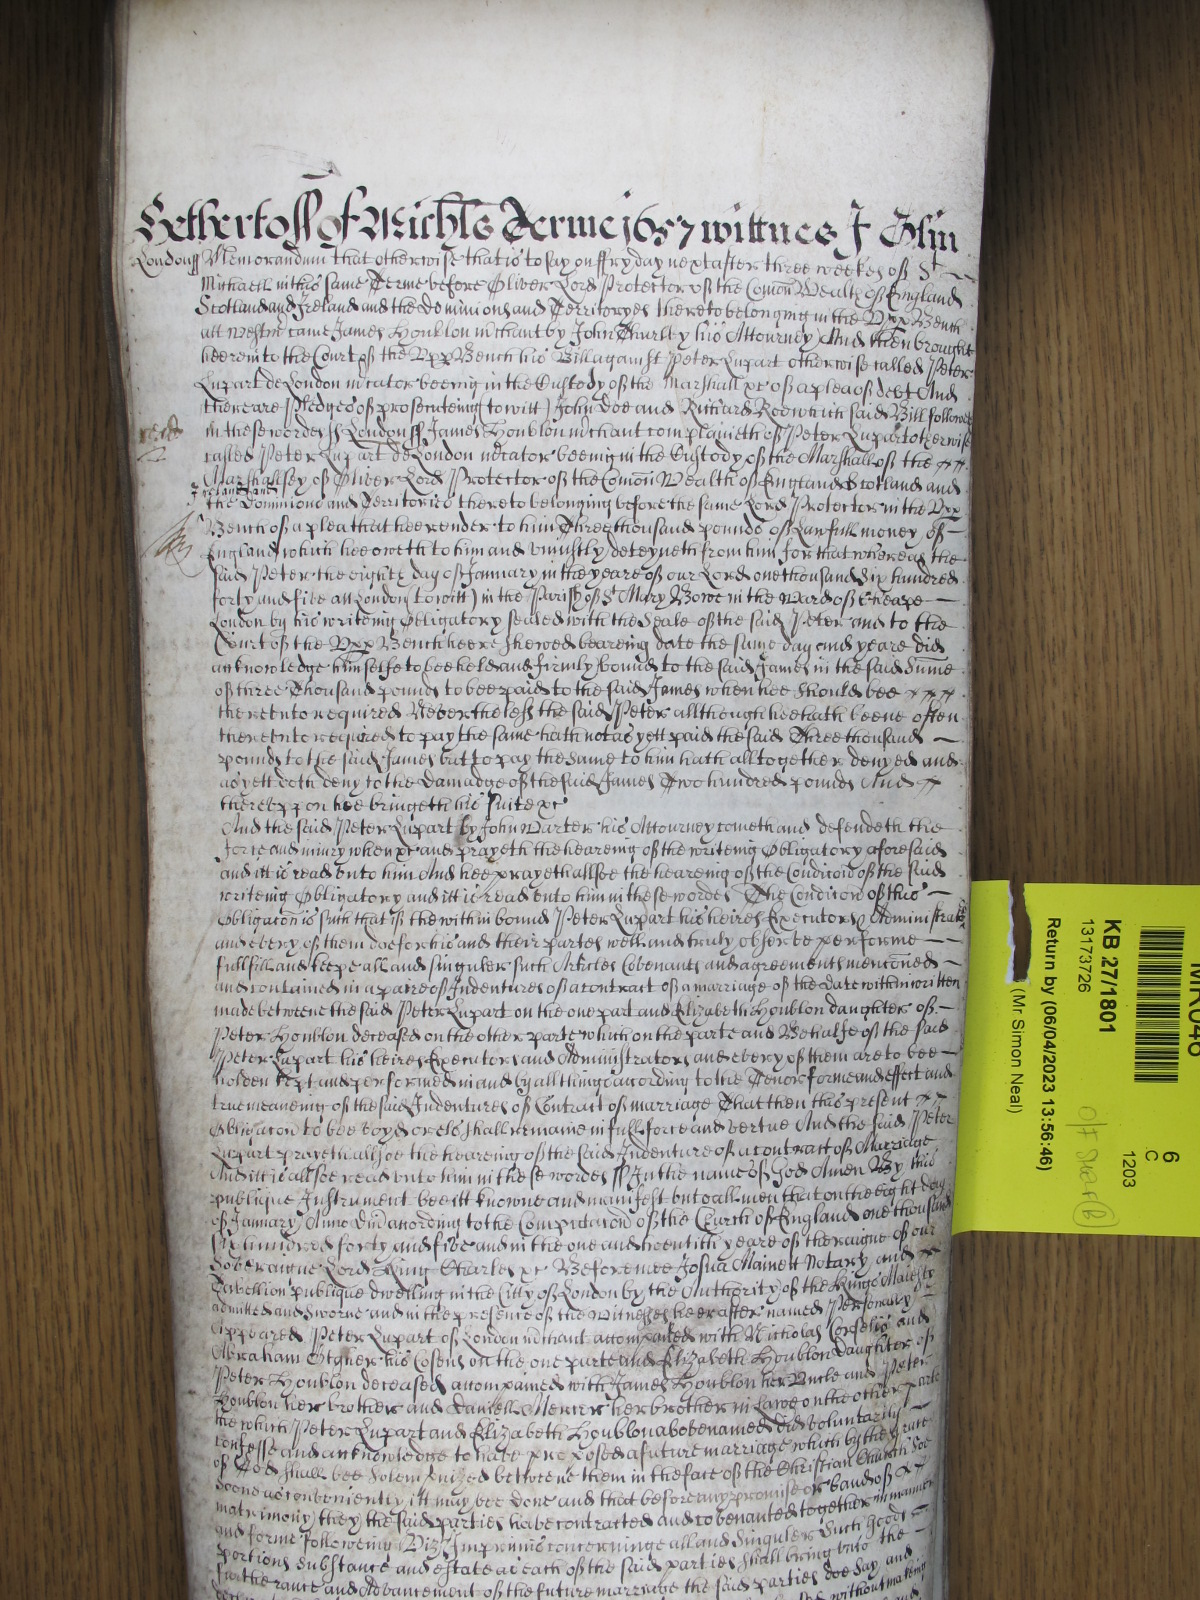 As yett of Michls Terme 1657 wittnes J Glin
London ss Memorandum that otherwise that is to say on ffryday next after three weekes of St
Michaell in this same Terme before Oliver Lord Protector of the Comon Wealth of England
Scotland and Ireland and the dominions and Territoryes thereto belonging in the Vpp Bench
att Westm came James Houblon mchant by John Thurley his Attourney And then brought
heere into the Court of the Vpp Bench his Bill against Peter Lupart otherwise called Peter
Lupart de London mcator beeing in the Custody of the Marshall xc of a plea of debt And
there are Pledges of prosecuteing (to witt) John Doe and Richard Roe which said Bill followes
in these wordes ss London ss James Houblon mchant complaineth of Peter Lupart otherwise
called Peter Lupart de London mcator beeing in the Custody of the Marshall of the
Marshallsey of Oliver Lord Protector of the Comon Wealth of England Scotland and
Ireland and
the Dominions and Territories thereto belonging before the same Lord Protector in the Vpp
Bench of a plea that hee render to him Three thousand pounds of Lawfull money of
England which hee oweth to him and uniustly deteyneth from him for that whereas the
said Peter the eighth day of January in the yeare of our Lord one thousand six hundred
forty and five att London (to witt) in the Parish of St Mary Bowe in the Ward of Cheape
London by his writeing Obligatory sealed with the Seale of the said Peter and to the
Court of the Vpp Bench heere shewed beareing date the same day and yeare did
acknowledge himselfe to bee held and firmly bound to the said James in the said Sume
of three Thousand pounds to bee paid to the said James when hee should bee
thereunto required Neverthelesse the said Peter allthough hee hath beene often
thereunto required to pay the same hath not as yett paid the said Three thousand
pounds to the said James but to pay the same to him hath alltogether denyed and
as yett doth deny to the damadge of the said James Two hundred pounds And
thereuppon hee bringeth his suite xc
And the said Peter Lupart by John Warter his Attourney cometh and defendeth the
force and iniury when xc and prayeth the heareing of the writeing Obligatory aforesaid
and itt is read unto him And hee prayeth allsoe the heareing of the Condicion of the said
writeing Obligatory and itt is read unto him in these wordes The Condicion of this
Obligacon is such that if the within bound Peter Lupart his heires Executors Administrators
and every of them doe for his and their partes well and truly observe performe
fullfill and keepe all and singuler such Articles Covenants and agreements mencioned
and contained in a paire of Indentures of a contract of a marriage of the date within written
made betweene the said Peter Lupart on the one part and Elizabeth Houblon daughter of
Peter Houblon deceased on the other parte which on the parte and Behalfe of the said
Peter Lupart his heires Executors and Administrators and every of them are to bee
holden kept and performed in and by all things according to the Tenor forme and effect and
true meaneing of the said Indentures of Contract of marriage That then this present
Obligacon to bee voyd or els shall remaine in full force and vertue And the said Peter
Lupart prayeth allsoe the heareing of the said Indenture of a contract of Marriage
And itt is allsoe read unto him in these wordes ss In the name of God Amen By this
publique Instrument bee itt knowne and manifest unto all men that on the eight day
of January Anno Dni according to the Computacon of the Church of England one thousand
six hundred forty and five and in the one and twentith yeare of the raigne of our
Soveraigne Lord King Charles xc Before mee Josua Mainet Notary and
Tabellion publique dwelling in the Citty of London by the Authority of the Kings Maiesty
admitted and sworne and in the presence of the Witnesses heerafter named Personally
Appeared Peter Lupart of London mchant accompanied with Nicholas Corselis and
Abraham his Cosens on the one parte and Elizabeth Houblon daughter of
Peter Houblon deceased accompanied with James Houblon her Uncle and Peter
Houblon her brother and Daniell Mercer her brother in Lawe on the other parte
the which Peter Lupart and Elizabeth Houblon abovenamed did voluntarily
confesse and acknowledge to have purposed a future marriage which by the grace
of God shall bee Solemnized betweene them in the face of the Christian Church soe
soone as conveniently itt may bee done and that before any promise or band of
matrimony they the said parties have contracted and covenanted together in manner
and forme following Vizt Imprimis concerninge all and singuler such goods
portions substance and estate as each of the said parties shall bring unto the
furtherance and Advancement of the future marriage the said parties doe say and
without makeing
KB 27/1801
13173726
Return by (06/04/2023 13:56:46)
(Mr Simon Neal)
6
C
1203